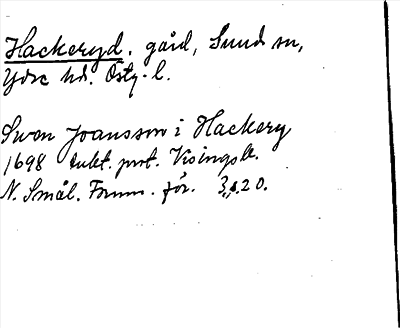 Hackeryd. gård, Sund sn,
Ydre hd. Östg. l.
Swen Joansson i Hackery
1698 enkt. prot. Visingsb.
N. Smål. Fornm. för. 3, s. 20.